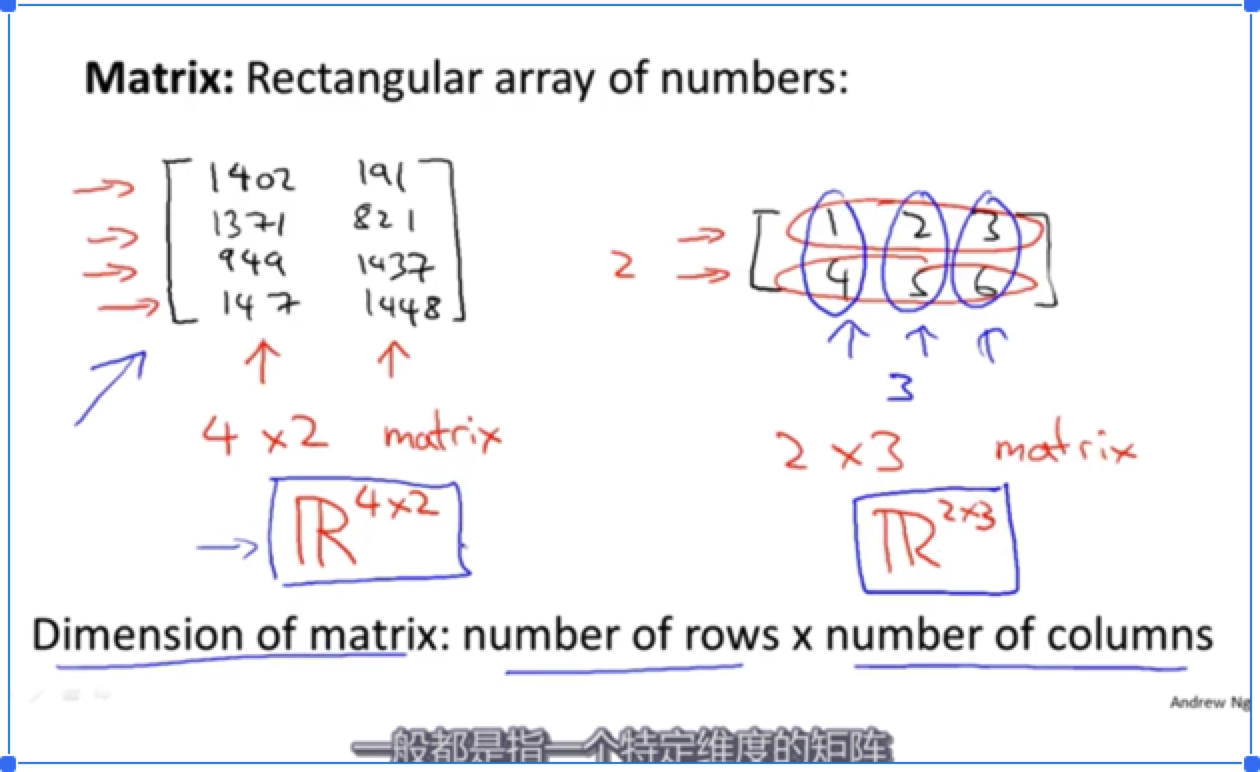 Matrix: Rectangular array of numbers:
1402 191
1371 821
949 1437
147 1448
2
1 2 3
4 5 6
3
4 x 2 matrix
2 x 3 matrix
ℝ^4x2
ℝ^2x3
Dimension of matrix: number of rows x number of columns
Andrew Ng
一般都是指一个特定维度的矩阵